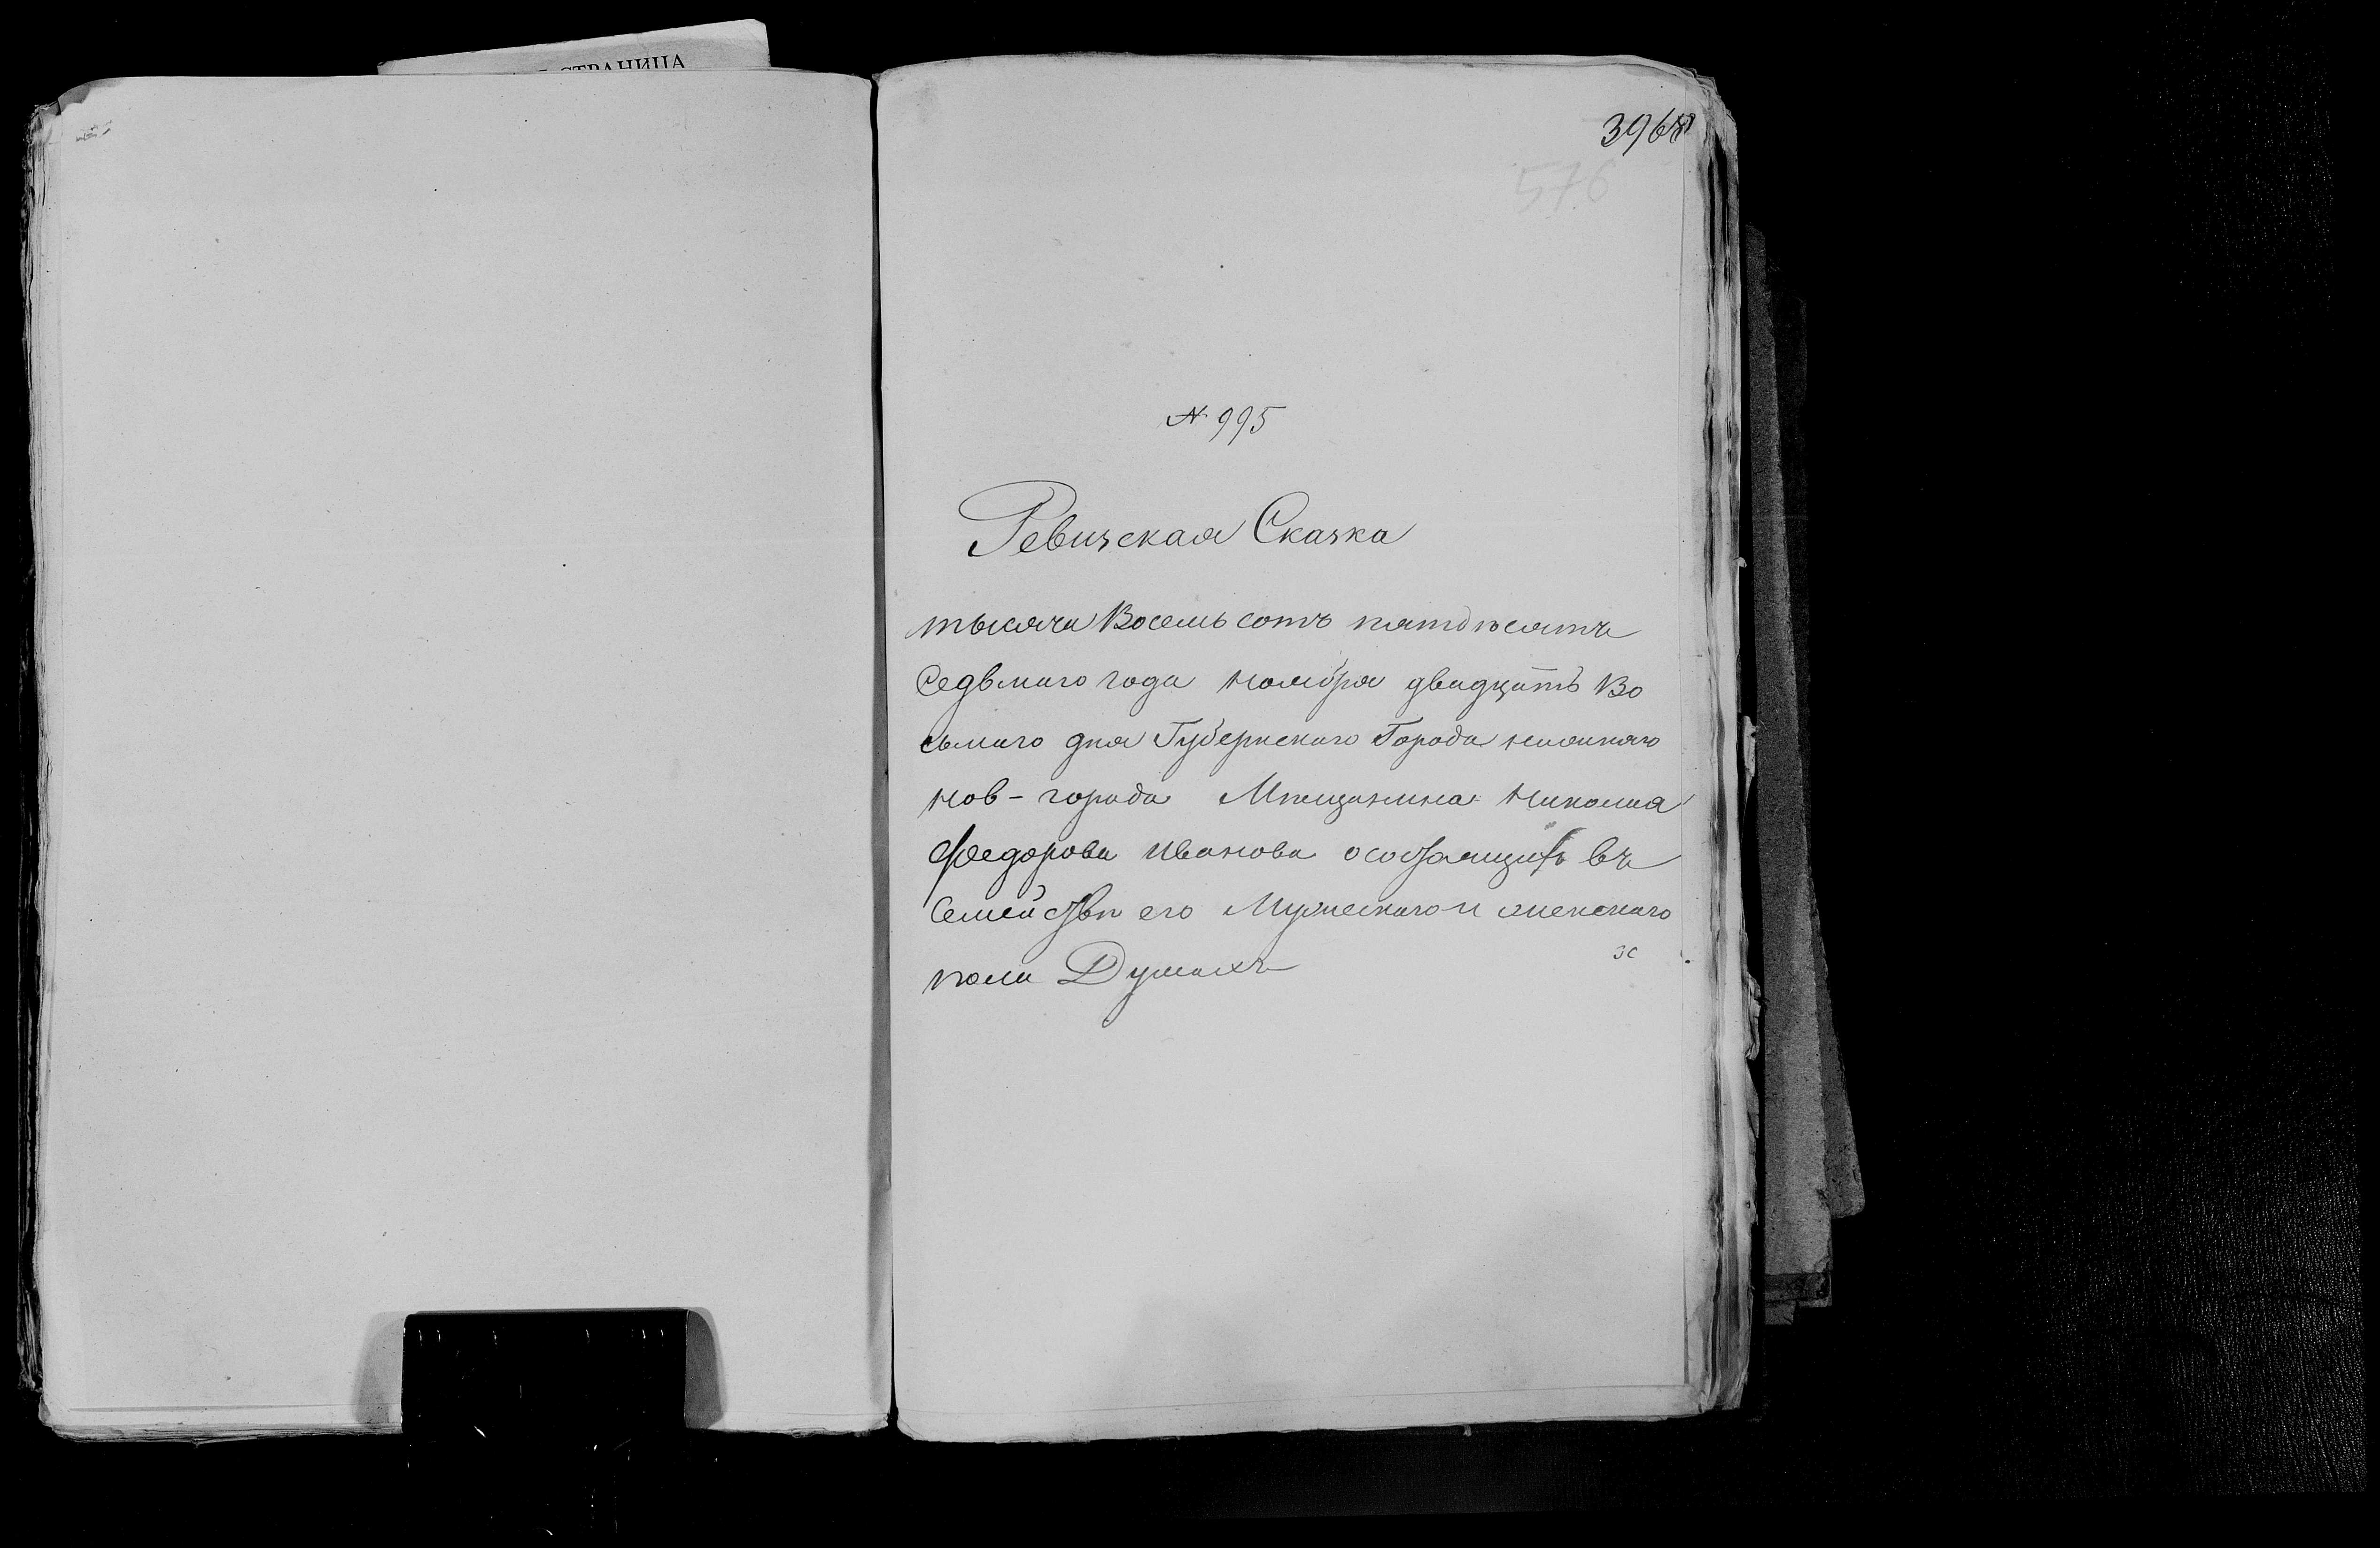 СТРАНИЦА
3968
576
№ 995
Ревизская Сказка
тысяча Восемьсотъ пятдѣсятъ
Седьмаго года ноября двадцать Во
сьмаго дня Губернскаго Города нижняго
нов-города Мѣщанина Николая
Федорова Иванова о состоящихъ въ
Семействѣ его Мужескаго и женскаго
пола Душахъ